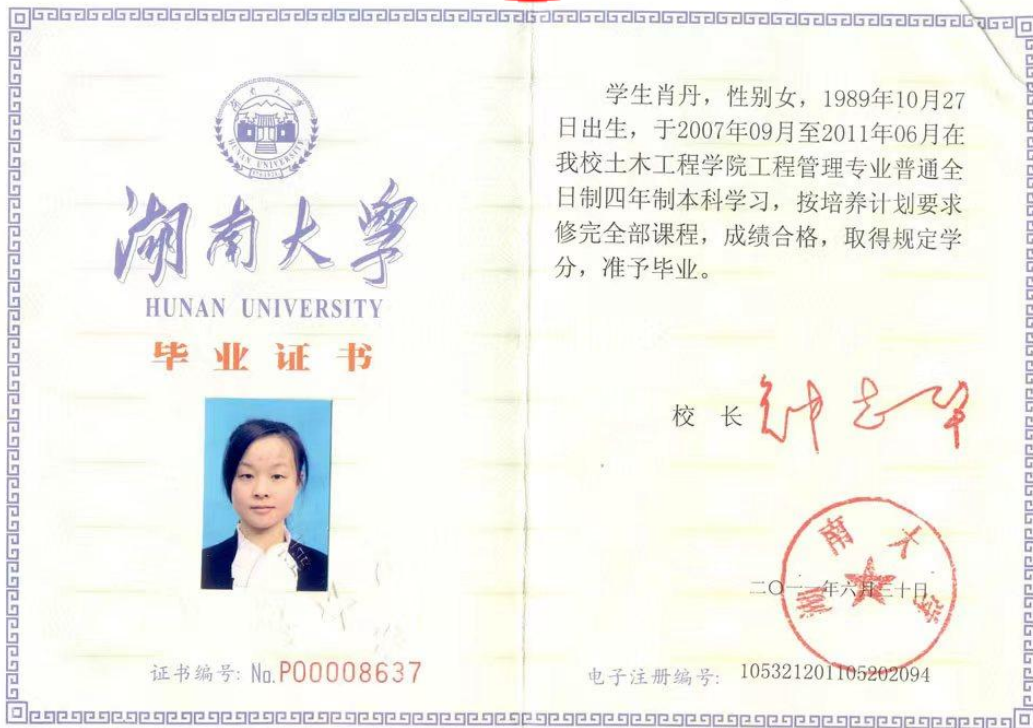 湖南大学
HUNAN UNIVERSITY
湖南大学
HUNAN UNIVERSITY
毕业证书
证书编号: No.P00008637
学生肖丹，性别女，1989年10月27
日出生，于2007年09月至2011年06月在
我校土木工程学院工程管理专业普通全
日制四年制本科学习，按培养计划要求
修完全部课程，成绩合格，取得规定学
分，准予毕业。
校 长 钟志华
湖南大学
二〇一一年六月三十日
电子注册编号: 105321201105202094